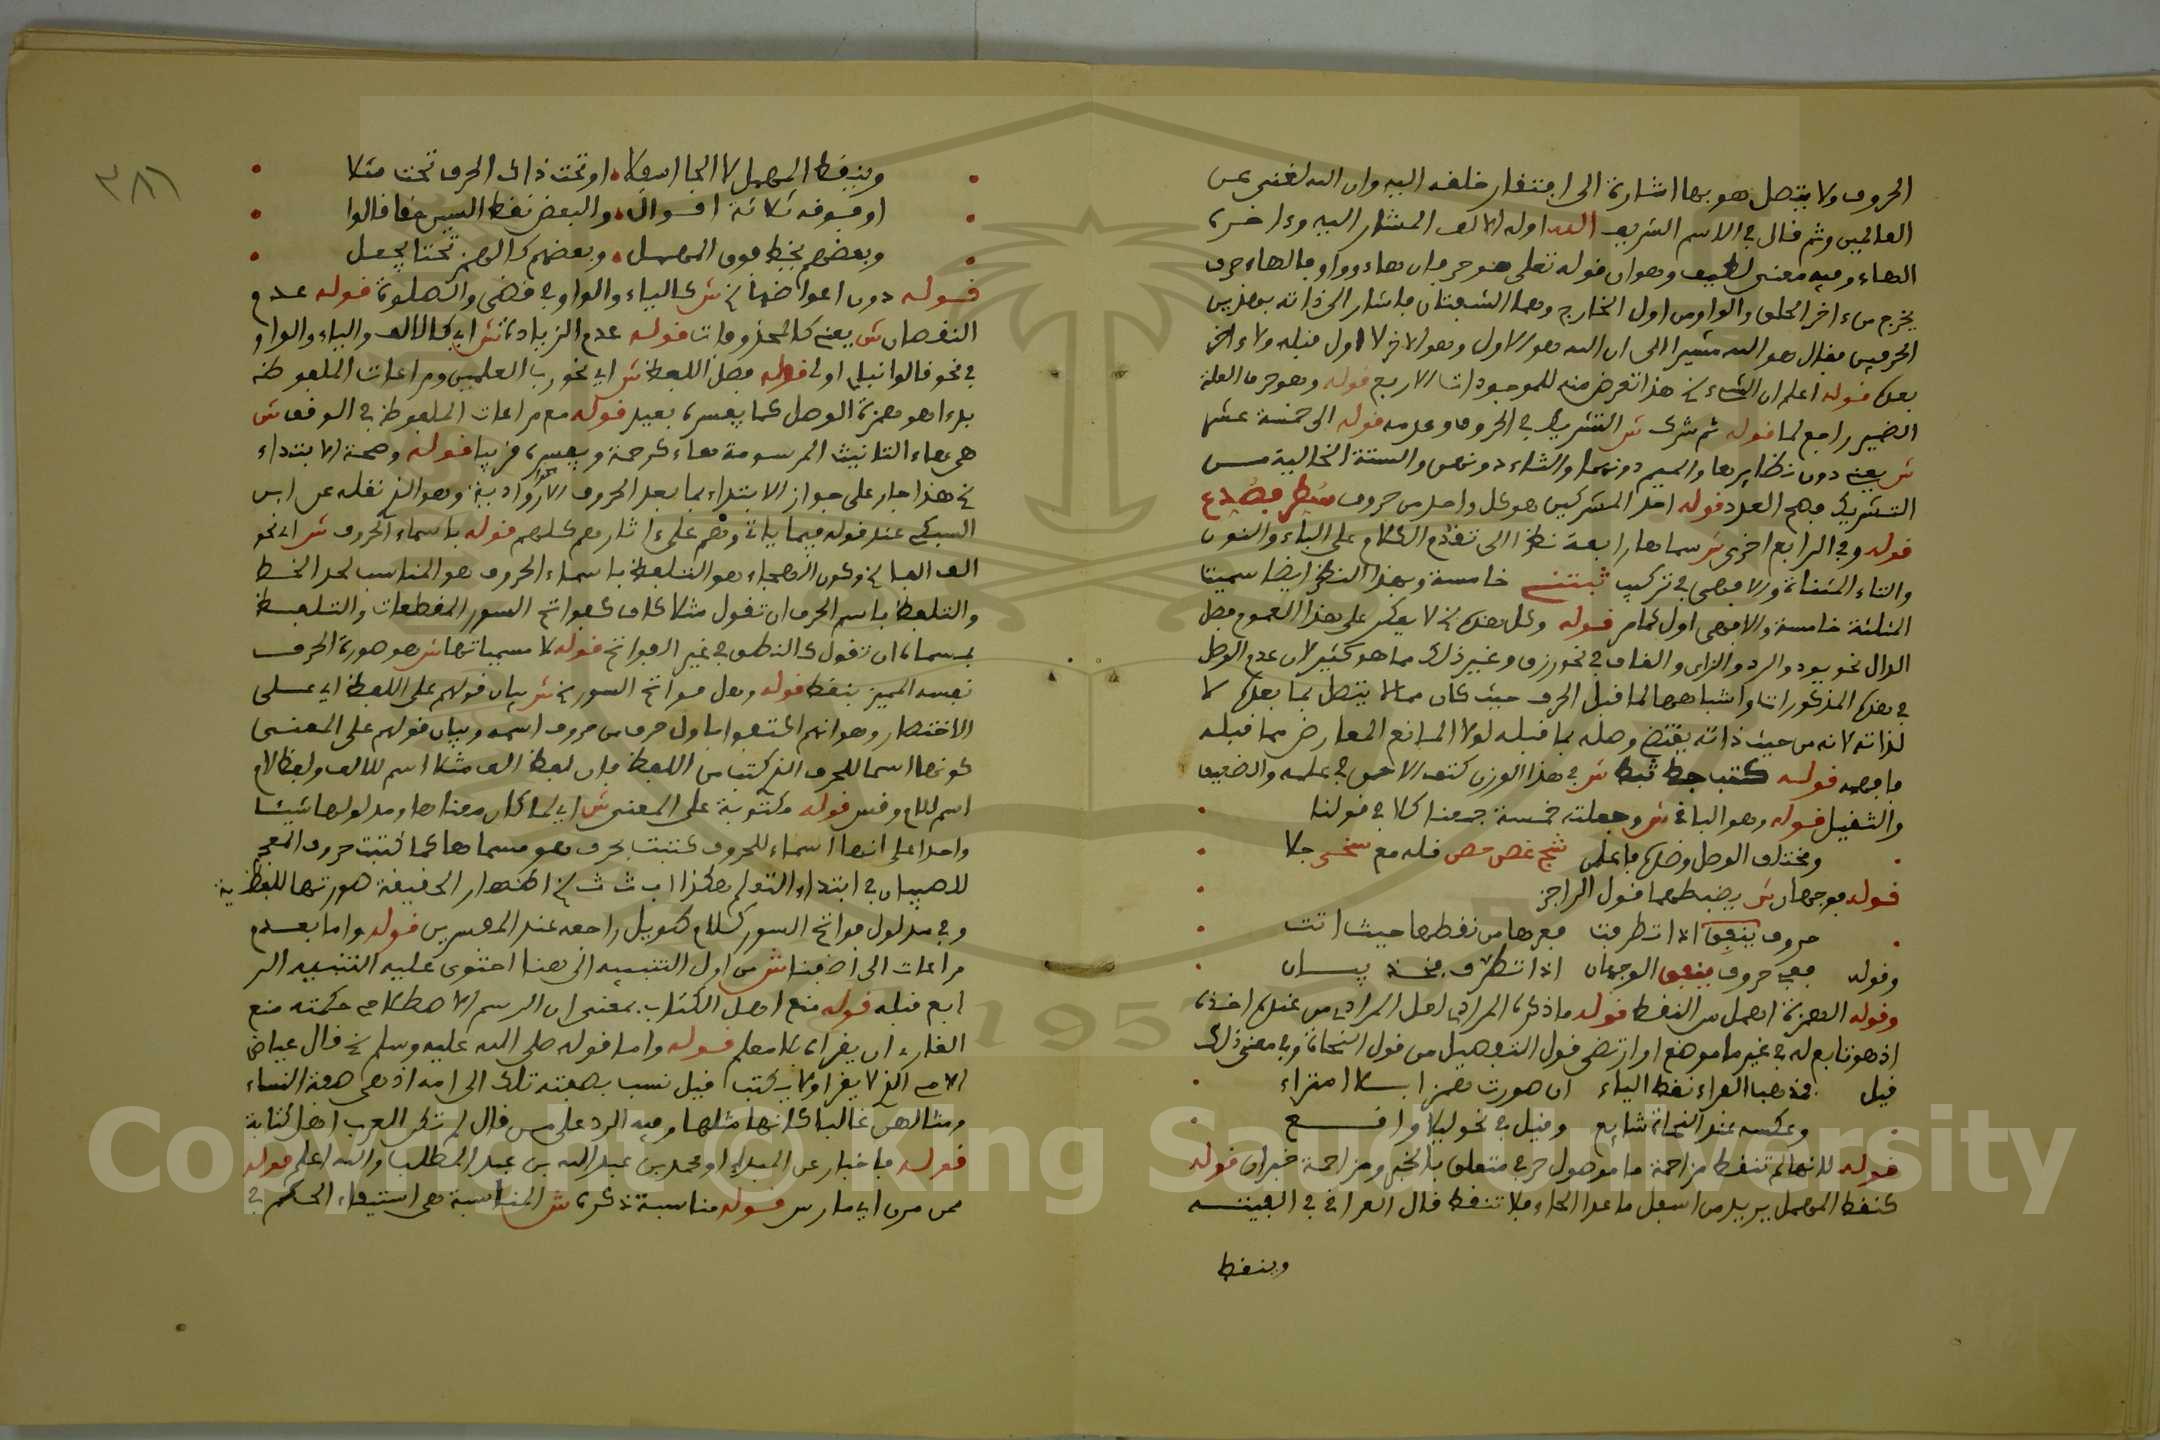 الحروف ولا يتصل هو بها اشارة الى افتقار خلقه اليه وان الله لغني عن
العالمين وثم قال في الاسم الشريف الله اوله الالف المشار اليه وءاخره
الهاء وفيه معنى لطيف وهو ان قوله تعلى هو حرفان هاء وواو فالهاء حرف
يخرج من ءاخر الحلق والواو من اول المخارج وهما الشفتان فاشار الى ذاته بهذين
الحرفين فقال هو الله مشيرا الى ان الله هو الاول وهو الاخر لا اول قبله ولا ءاخر
بعده قوله اعلم ان الشيء الخ هذا تعرض منه للموجودات الاربع قوله وهو حرف العلة
الضمير راجع لما قوله ثم شرك ش التشريك في الحروف وعدمه قوله الى خمسة عشر
ش يعني دون نظايرها والميم دونهما والشاء دونهن والستة الخالية من
التشريك فهم العدد قوله احد المشركين هو كل واحد من حروف
قوله وفي الرابع اخرى ش سماها رابعة نظرا الى تقدم الكلام على الباء والنون
والتاء المثناة والا فهي في تركيب ثبتني خامسة وبهذا النظر ايضا سميت
المثلثة خامسة والا فهي اول كما مر قوله وكل هذه الخ لا يعكر على هذا العموم فصل
الدال نحو يود والرد والزاي والقاف في نحو رزق وغير ذلك مما هو كثير لان عدم الوصل
في هذه المذكورات واشباهها لما قبل الحرف حيث كان مما لا يتصل بما بعده لا
لذاته لانه من حيث ذاته يقتضي وصله بما قبله لولا المانع العارض مما قبله
فافهمه قوله كتب حظ ثبط ش في هذا الوزن كتف الاحمق في علمه والضعيف
والثقيل قوله وهو الباقي ش وجعلته خمسة جمعنا كلا في قولنا
ومختلف الوصل وضده فاعلمن شج غض مص قله مع سخي جلا
قوله فوجهان ش يضبطهما قول الراجز
حروف ينفق اذا تطرفت فعرها من نقطها حيث اتت
وقوله ففي حروف ينفق الوجهان اذا تطرفت فخذ بيان
وقوله الهمزة اهمل من النقط قوله ما ذكره المرادي لعل المرادي من عنده اخذه
اذ هو تابع له في غير ما موضع او ارتضى قول التسهيل من قول النحاة وفي معنى ذلك
قيل فمذهب القراء نقط الياء ان صورت همزا بلا امتراء
وعكسه عند النحاة شايع وقيل في نحو ليلا واقع
قوله لانها لم تنقط مزاحمة ما موصول حرفي متعلق بالخبر ومزاحمة خبران قوله
كنقط المهمل يريد من اسفل ما عدا الحاء فلا تنقط قال العراقي في الفيته
وينقط
٣٨٦
وينقط المهمل لا الحا اسفلا او تحت ذاك الحرف تحت مثلا
او فوقه قلامة اقوال والبعض نقط السين صفا قالوا
وبعضهم يخط فوق المهمل وبعضهم كالهمز تحتا يجعل
قوله دون اعواضها الخ ش كالياء والواو في قضى والصلوة قوله عدم
النقصان ش يعني كالمحذوفات قوله عدم الزيادة ش اي كالالف والياء والواو
في نحو قالوا نبإي اولئك قوله فصل اللفظ ش اي نحو رب العلمين ومراعات الملفوظ
بدءا هو همزة الوصل كما يفسره بعيد قوله مع مراعات الملفوظ في الوقف ش
هي هاء التانيث المرسومة هاء كرحمة ويفسره قريبا قوله وصحة الابتداء
الخ هذا جار على جواز الابتداء بما بعد الحروف الافرادية وهو الذي نقله عن ابن
السبكي عند قوله فيما ياتي وهم على ءاثارهم كلهم قوله باسماء الحروف ش اي نحو
الف الباء الخ وكون الهجاء هو التلفظ باسماء الحروف هو المناسب لحد الخط
والتلفظ باسم الحرف ان تقول مثلا كاف كفواتح السور المقطعات والتلفظ
بمسماه ان تقول ك النطق في غير الفواتح قوله لا مسمياتها ش هو صورة الحرف
نفسه المميز بنقط قوله وهل فواتح السور الخ ش بيان قولهم على اللفظ اي على
الاختصار وهو انهم اكتفوا باول حرف من حروف اسمه وبيان قولهم على المعنى
كونها اسما للحرف الذي كتب من اللفظ فان لفظ الف مثلا اسم للالف ولفظ لام
اسم للام وقس قوله مكتوبة على المعنى ش اي لما كان معناها ومدلولها شيئا
واحدا على انها اسماء للحروف كتبت بحرف هو مسماها كما كتبت حروف المعجم
للصبيان في ابتداء التعلم هكذا ا ب ت ث الخ اختصار الحقيقة صورتها اللفظية
وفي مدلول فواتح السور كلام طويل راجعه عند المفسرين قوله واما بعدم
مراعات الى أضفنا ش من اول التنبيه الى هنا احتوى عليه التنبيه الر
ابع قبله قوله منع اهل الكتاب بمعنى ان الرسم الاصطلاحي حكمته منع
القارئ ان يقراه بلا معلم قوله واما قوله صلى الله عليه وسلم الخ قال عياض
الامي الذي لا يقرا ولا يكتب قيل نسب بصفته تلك الى امه اذ هي صفة النساء
ومثالهن غالبا كانها مثلها وفيه الرد على من قال لم تكن العرب اهل كتابة
قوله فاخبار عن المبدإ او محمد بن عبد الله بن عبد المطلب والله اعلم قوله
ممن مرن اي مارس قوله مناسبة ذكره ش المناسبة هي استيفاء الحكم في
Copyright © King Saud University
1957